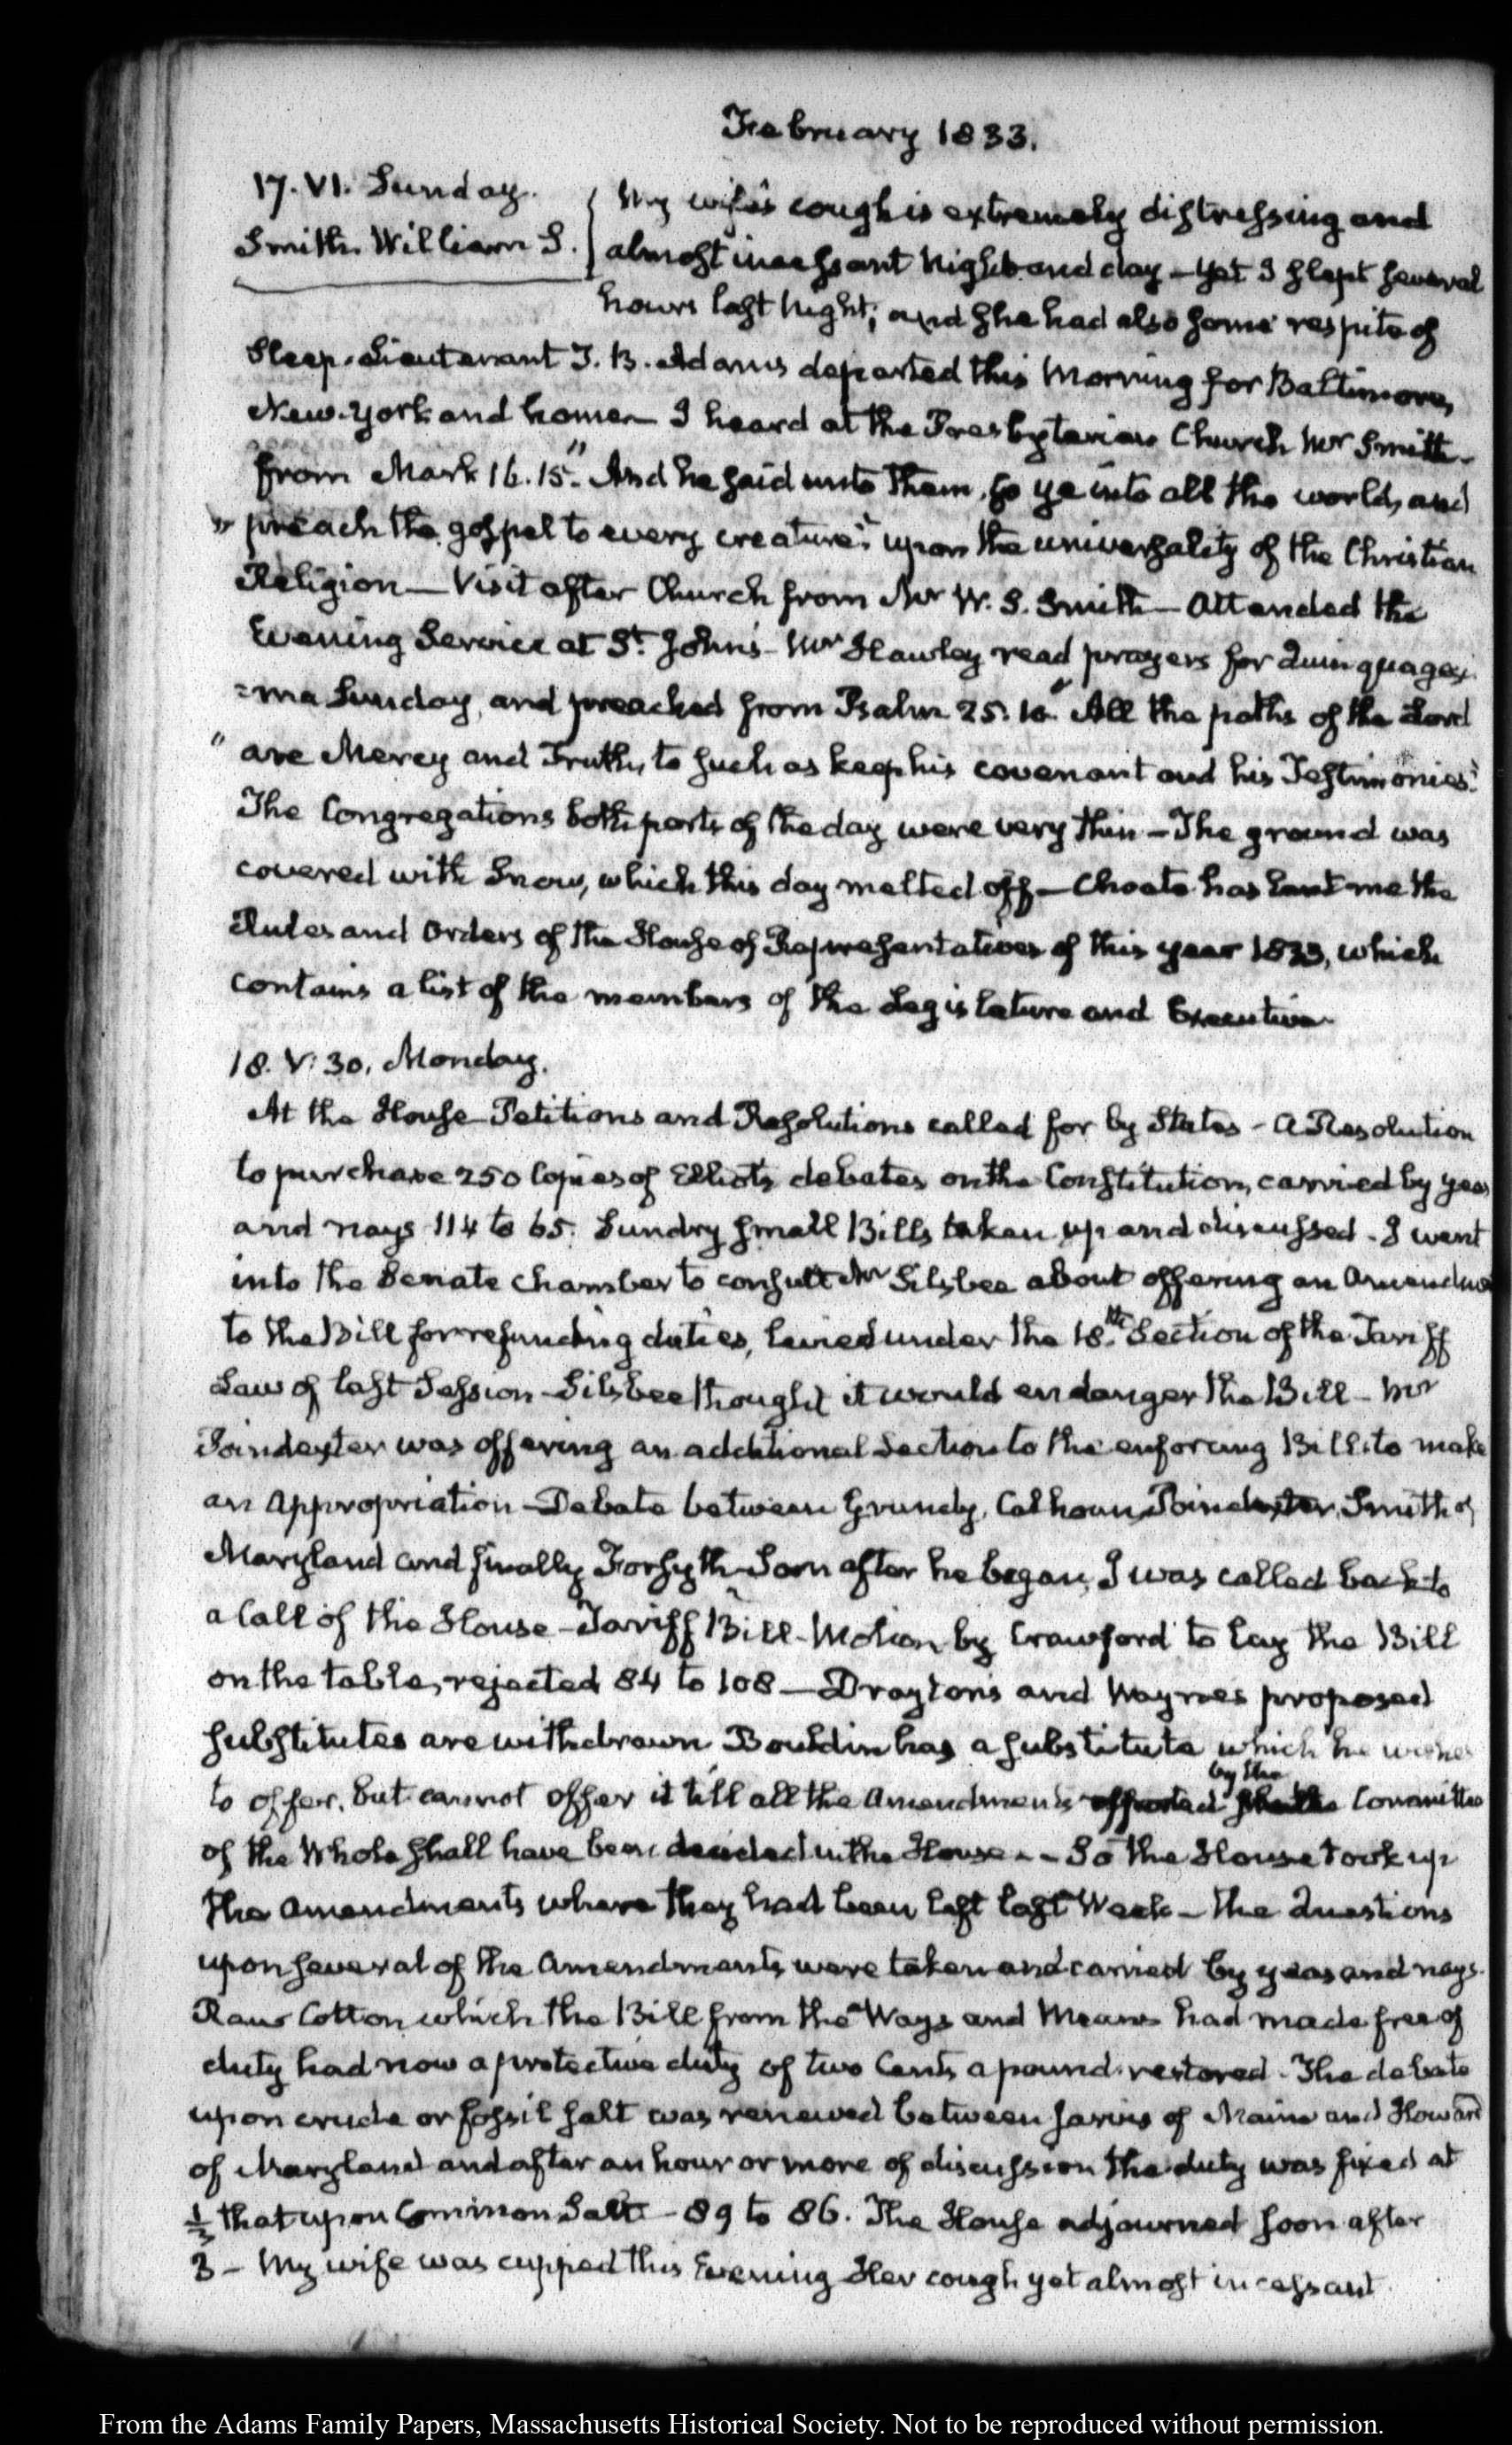 February 1833.
17. VI. Sunday.
Smith. William S.
My wife's cough is extremely distressing and
almost incessant Night and day — yet I slept several
hours last Night; and she had also some respite of
Sleep. Lieutenant T. B. Adams departed this Morning for Baltimore,
New-York and home — I heard at the Presbyterian Church Mr Smith —
from Mark 16. 15. "And he said unto them, Go ye into all the world, and
" preach the gospel to every creature." upon the universality of the Christian
Religion — Visit after Church from Mr W. S. Smith — Attended the
Evening Service at St. John's — Mr Hawley read prayers for Quinquagesi
=ma Sunday, and preached from Psalm 25. 10. " All the paths of the Lord
" are Mercy and Truth, to such as keep his covenant and his Testimonies."
The Congregations both parts of the day were very thin — The ground was
covered with Snow, which this day melted off — Choate has lent me the
Rules and Orders of the House of Representatives of this year 1833, which
contains a list of the members of the Legislature and Executive.
18. V: 30. Monday.
At the House Petitions and Resolutions called for by States — A Resolution
to purchase 250 Copies of Elliot's debates on the Constitution, carried by yeas
and nays 114 to 65. Sundry small Bills taken up and discussed. I went
into the Senate chamber to consult Mr Silsbee about offering an Amendme
to the Bill for refunding duties, levied under the 18.th Section of the Tariff
Law of last Session — Silsbee thought it would endanger the Bill — Mr
Poindexter was offering an additional Section to the enforcing Bill, to make
an Appropriation — Debate between Grundy, Calhoun, Poindexter, Smith of
Maryland and finally Forsyth — Soon after he began, I was called back to
a Call of the House — Tariff Bill — Motion by Crawford to lay the Bill
on the table, rejected 84 to 108 — Drayton's and Wayne's proposed
substitutes are withdrawn Bouldin has a substitute which he wishes
to offer, but cannot offer it till all the Amendments by the Committee
of the Whole shall have been decided in the House — So the House took up
the Amendments where they had been left last Week — The Questions
upon several of the Amendments were taken and carried by yeas and nays.
Raw Cotton which the Bill from the Ways and Means had made free of
duty had now a protective duty of two Cents a pound restored. The debate
upon crude or fossil salt was renewed between Jarvis of Maine and Howard
of Maryland and after an hour or more of discussion the duty was fixed at
1/3 that upon Common Salt — 89 to 86. The House adjourned soon after
3 — My wife was cupped this Evening Her cough yet almost incessant.
From the Adams Family Papers, Massachusetts Historical Society. Not to be reproduced without permission.